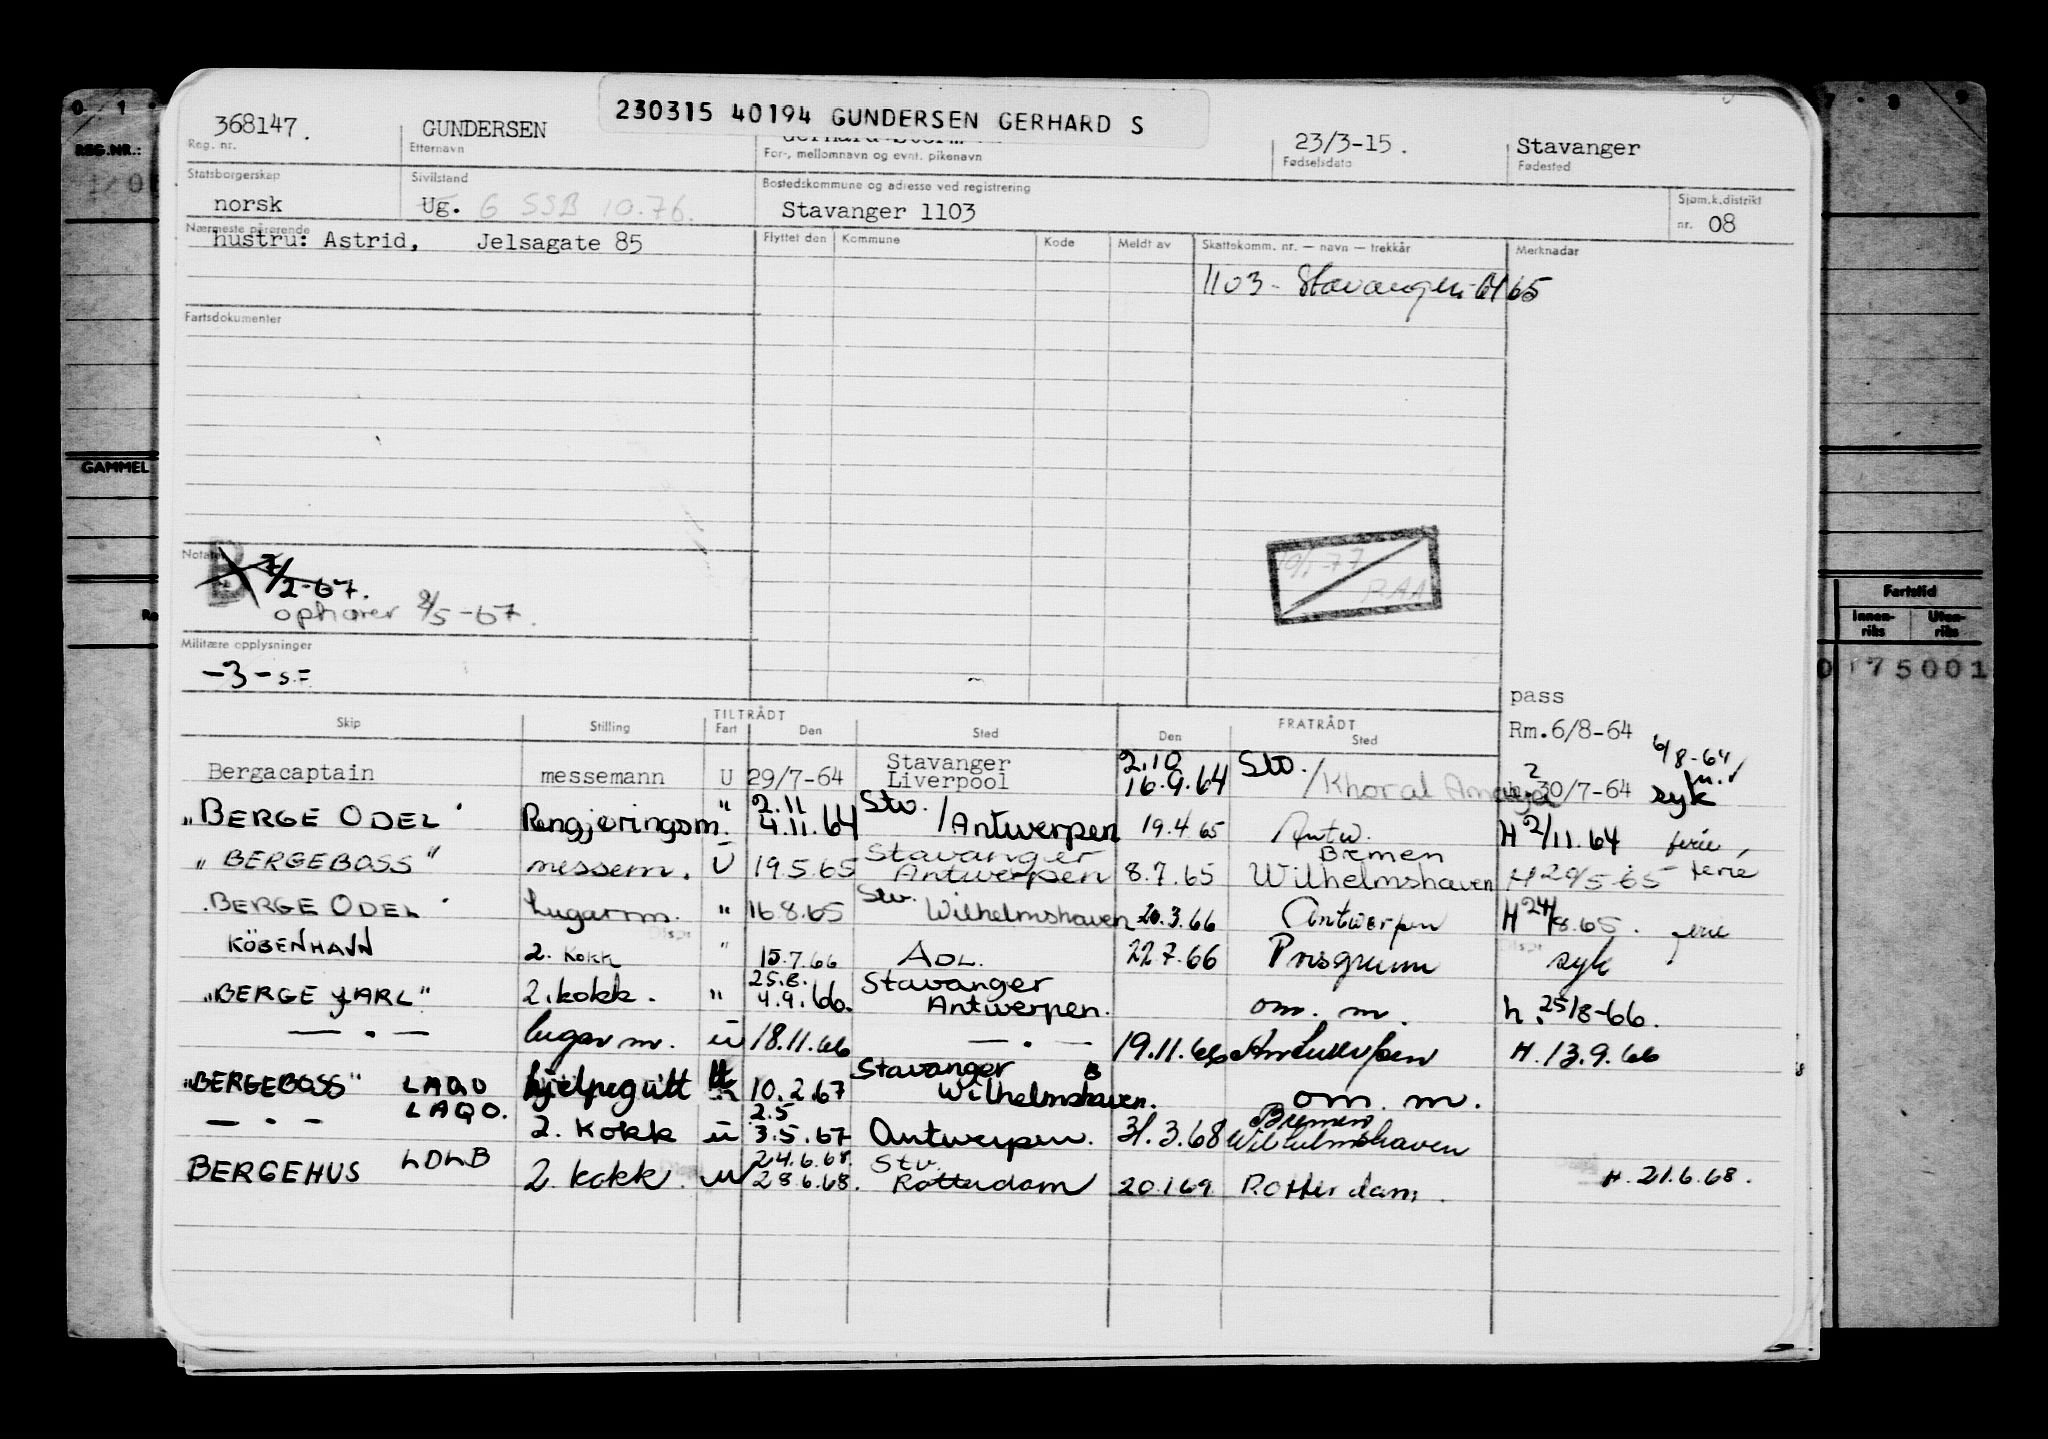 230315 40194 GUNDERSEN GERHARD S
368147.
GUNDERSEN
23/3-15.
Stavanger
Reg. nr.
Etternavn
For-, mellomnavn og evnt. pikenavn
Fødselsdato
Fødested
Statsborgerskap
Sivilstand
Bostedskommune og adresse ved registrering
Sjøm.k.distrikt
norsk
Ug. G SSB 10.76.
Stavanger 1103
nr. 08
Nærmeste pårørende
hustru: Astrid, Jelsagate 85
Flyttet den
Kommune
Kode
Meldt av
Skattekomm. nr. — navn — trekkår
Merknader
1103 - Stavanger 64 65
Fartsdokumenter
10/1-77
RAA
B
2/2-67.
opphører 2/5-67.
Militære opplysninger
-3- S.F
pass
Rm.6/8-64
Skip
Stilling
TILTRÅDT
Fart
Den
Sted
FRATRÅDT
Den
Sted
Bergacaptain messemann U 29/7-64 Stavanger Liverpool 2.10 16.9.64 Stv. / Khoral 30/7-64 6/8-64 syk
"BERGE ODEL" Rengjøringsm. " 2.11 4.11.64 Stv. / Antwerpen 19.4 65 Antw. H 2/11.64 ferie
"BERGEBOSS" messem. U 19.5.65 Stavanger Antwerpen 8.7.65 Bremen Wilhelmshaven H 20/5-65 ferie
BERGE ODEL lugarm. " 16.8.65 Stv. Wilhelmshaven 20.3.66 Antwerpen H 24/8.65. ferie
KÖBENHAVN 2. Kokk " 15.7.66 ADL. 22.7.66 Porsgrunn syk
"BERGE JARL" 2. kokk. " 25.8. 4.9.66. Stavanger Antwerpen. om. m. h. 25/8-66.
— . — lugarm. u 18.11.66 — . — 19.11.66 Antwerpen H. 13.9.66
"BERGEBOSS" LAQO hjelpegutt u 10.2.67 Stavanger Wilhelmshaven. om. m.
- - - LAQO. 2. kokk u 2.5 3.5.67 Antwerpen. 31.3.68 Bremen Wilhelmshaven
BERGEHUS LDLB 2. kokk. u 24.6.68. 28.6.68. Stv. Rotterdam 20.1 69 Rotterdam. H. 21.6.68.
REG.NR.:
GAMMEL
Fartstid
Innen-riks
Uten-riks
75001